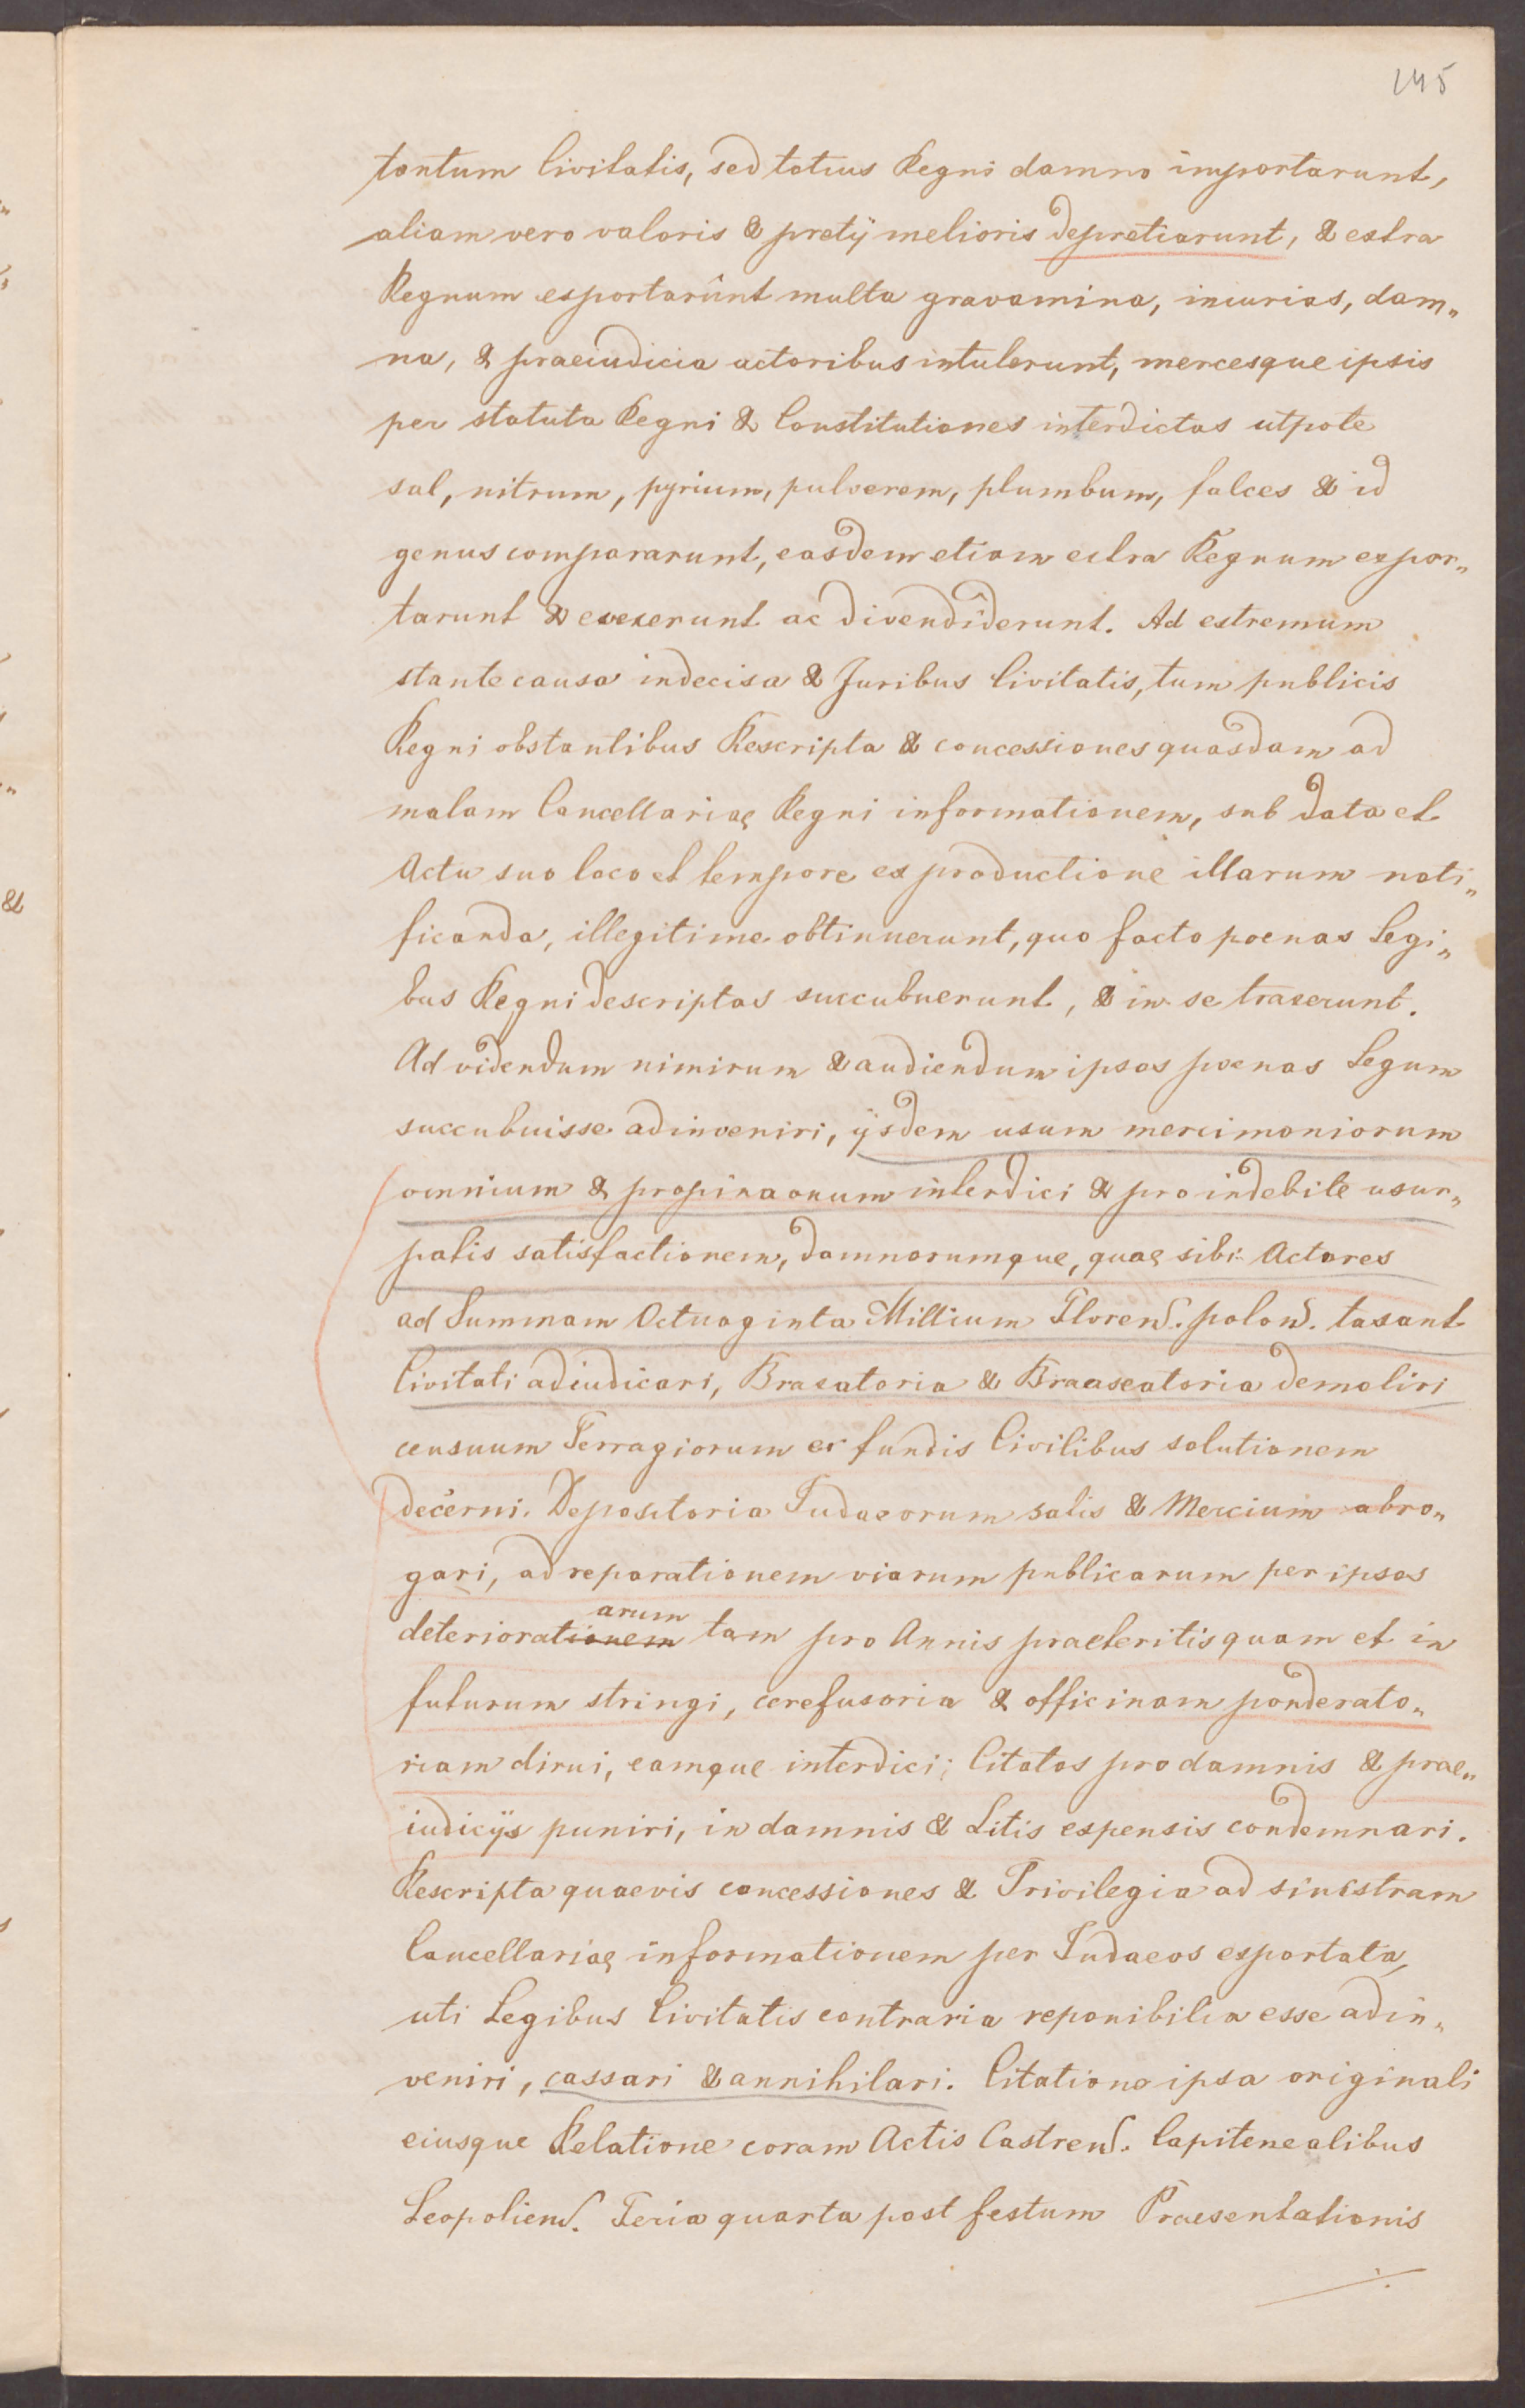 145
tantum Civitatis, sed totius Regni damno importarunt,
aliam vero valoris & pretij melioris depretiarunt, & extra
Regnum exportarunt multa gravamina, iniurias, dam„
na, & praeiudicia actoribus intulerunt, mercesque ipsis
per statuta Regni & Constitutiones interdictas utpote
sal, nitrum, pyrium, pulverem, plumbum, falces & id
genus compararunt, easdem etiam extra Regnum expor„
tarunt & evexerunt ac divendiderunt. Ad extremum
stante causa indecisa & Juribus Civitatis, tum publicis
Regni obstantibus Rescripta & concessiones quasdam ad
malam Cancellariae Regni informationem, sub data et
Actu suo loco et tempore ex productione illarum noti„
ficanda, illegitime obtinuerunt, quo facto poenas Legi„
bus Regni descriptas succubuerunt, & in se traxerunt.
Ad videndum nimirum & audiendum ipsos poenas Legum
succubuisse adinveniri, ijsdem usum mercimoniorum
omnium & propinaonum interdici & pro indebite usur„
patis satisfactionem, damnorumque, quae sibi Actores
ad Summam Octuaginta Millium Floren. polon. taxant
Civitati adiudicari, Braxatoria & Braaseatoria demoliri
censuum Terragiorum ex fundis Civilibus solutionem
decerni. Depositoria Judaeorum salis & Mercium abro„
gari, ad reparationem viarum publicarum per ipsos
arum
deteriorationem tam pro Annis praeteritis quam et in
futurum stringi, cerefusoria & officinam ponderato„
riam dirui, eamque interdici; Citatos pro damnis & prae„
iudicijs puniri, in damnis & Litis expensis condemnari.
Rescripta quaevis concessiones & Privilegia ad sinistram
Cancellariae informationem per Judaeos exportata,
uti Legibus Civitatis contraria reponibilia esse adin„
veniri, cassari & annihilari. Citatione ipsa originali
eiusque Relatione coram Actis Castren. Capitenealibus
Leopolien. Feria quarta post festum Praesentationis
./.